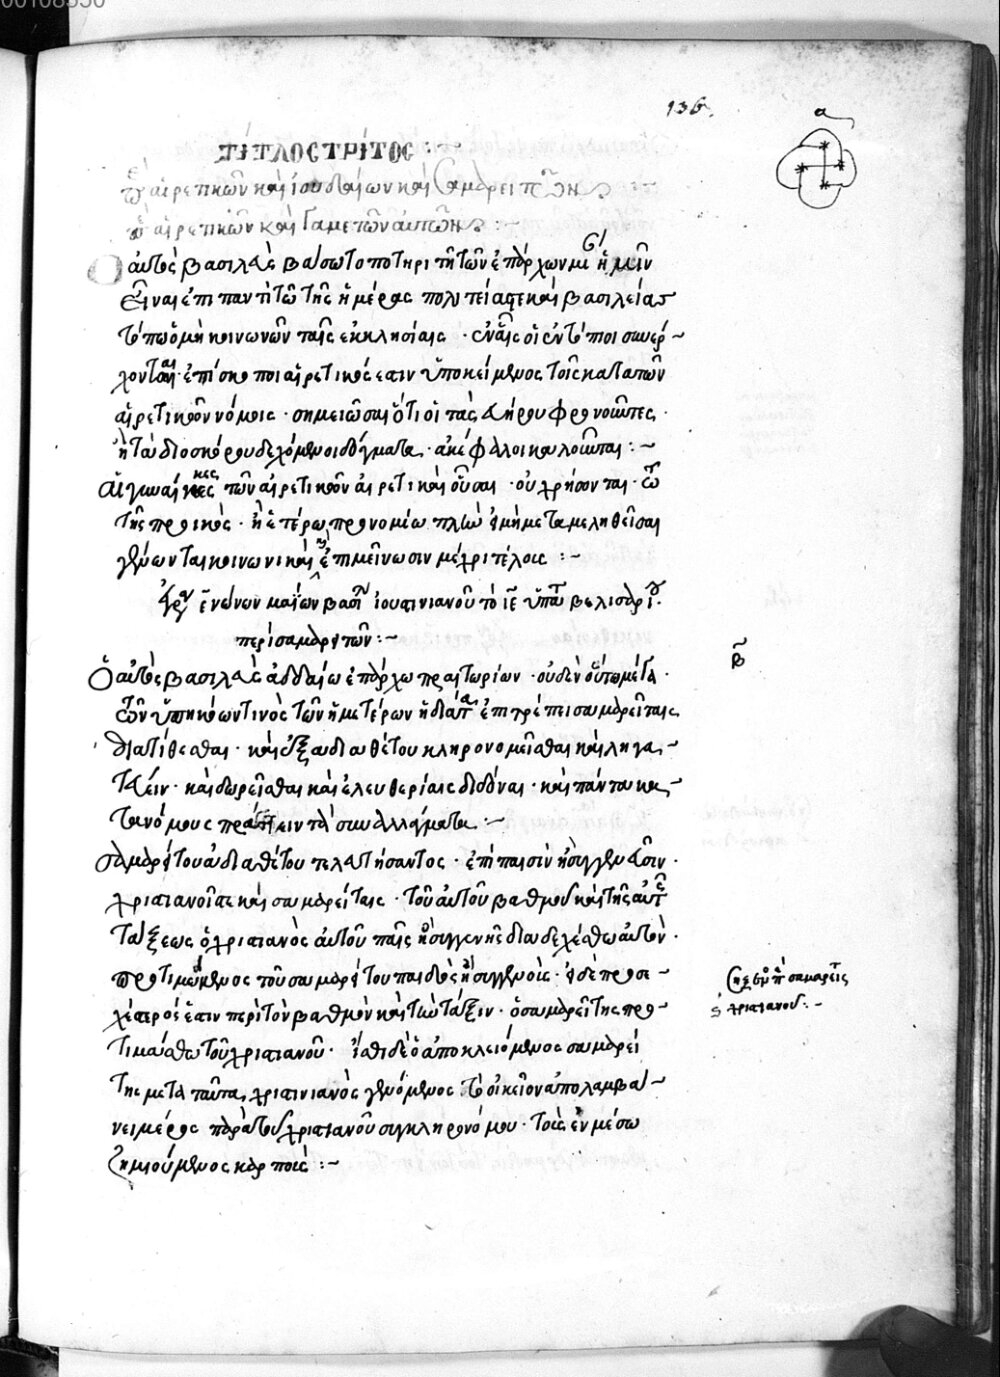 136
α
ΤΙΤΛΟΣ ΤΡΙΤΟΣ :~
αἱρετικῶν καὶ ἰουδαίων καὶ σαμαρειτῶν
αἱρετικῶν καὶ γαμετῶν αὐτῶν :~
Ὁ αὐτὸς βασιλεὺς
εἶναι ἐπὶ παντὶ τῷ τῆς ἡμέρας πολιτείας τε καὶ βασιλείας
τόπῳ ὁ μὴ κοινωνῶν ταῖς ἐκκλησίαις · ἐν αἷς οἱ ἐν τόποι συνέρ~
χονται ἐπίσκοποι αἱρετικός ἐστιν ὑποκείμενος τοῖς κατὰ τῶν
αἱρετικῶν νόμοις · σημείωσαι ὅτι οἱ τὰ φρονοῦντες ·
ἢ τὰ διοσκόρου δεχόμενοι δόγματα · ἀκέφαλοι καλοῦνται :~
Αἱ γυναῖκες τῶν αἱρετικῶν αἱρετικαὶ οὖσαι · οὐ χρήσονται · τῷ
τῆς προικὸς · ἢ ἑτέρῳ προνομίῳ πλὴν εἰ μὴ μεταμεληθεῖσαι
γένωνται κοινωνικαὶ ἐπιμείνωσιν μέχρι τέλους :~
ἰουστινιανοῦ τὸ ιε ὑπατ βελισαρίου.
περὶ σαμαρειτῶν :~
β
Ὁ αὐτὸς βασιλεὺς ἀδδαίῳ ἐπάρχῳ πραιτωρίων · οὐδὲν οὕτω μέγα ·
τῶν ὑπηκόων τινὸς τῶν ἡμετέρων ἡ διάτα ἐπιτρέπει σαμαρείταις
διατίθεσθαι · καὶ ἐξ ἀδιαθέτου κληρονομεῖσθαι καὶ ληγα~
τεύειν · καὶ δωρεῖσθαι καὶ ἐλευθερίας διδόναι · καὶ πάντα κα~
τὰ νόμους πράττειν τὰ συναλλάγματα :~
σαμαρείτου ἀδιαθέτου τελευτήσαντος · ἐπὶ παισὶν ἢ συγγενέσιν ·
χριστιανοῖς τε καὶ σαμαρείταις · τοῦ αὐτοῦ βαθμοῦ καὶ τῆς αὐτῆς
τάξεως ὁ χριστιανὸς αὐτοῦ παῖς ἢ συγγενὴς διαδεχέσθω αὐτόν ·
προτιμώμενος τοῦ σαμαρείτου παιδὸς ἢ συγγενοῦς · εἰ δὲ προσε~
χέστερός ἐστιν περὶ τὸν βαθμὸν καὶ τὴν τάξιν · ὁ σαμαρείτης προ~
τιμάσθω τοῦ χριστιανοῦ · ἴσθι δὲ ὁ ἀποκλειόμενος σαμαρεί
της μετὰ ταῦτα χριστιανὸς γενόμενος τὸ οἰκεῖον ἀπολαμβά~
νει μέρος παρὰ τοῦ χριστιανοῦ συγκληρονόμου · τοὺς ἐν μέσῳ
ζημιούμενος καρποὺς :~
σαμαρείτης
χριστιανοῦ :~